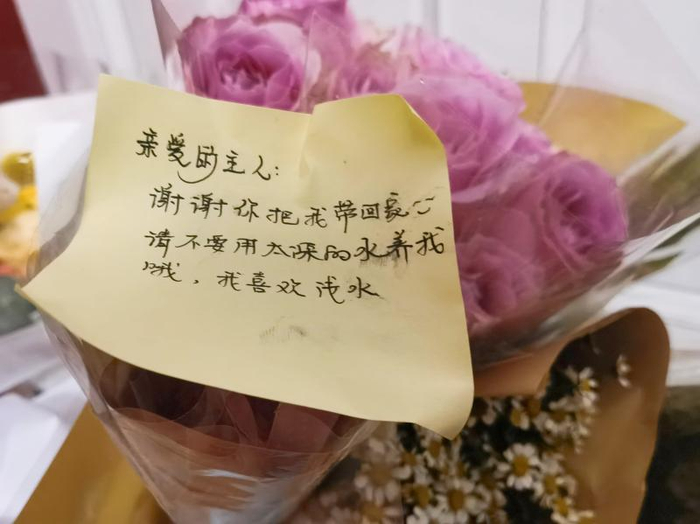 亲爱的主人:
谢谢你把我带回家
请不要用太深的水养我
哦，我喜欢浅水